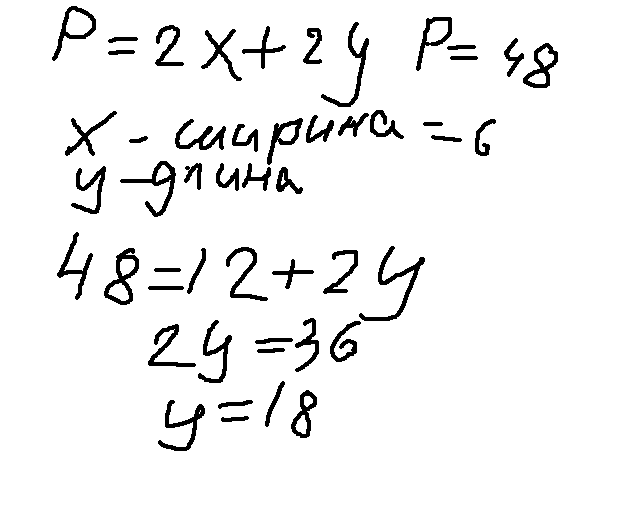 P = 2x + 2y P = 48
x - ширина = 6
y - длина
48 = 12 + 2y
2y = 36
y = 18